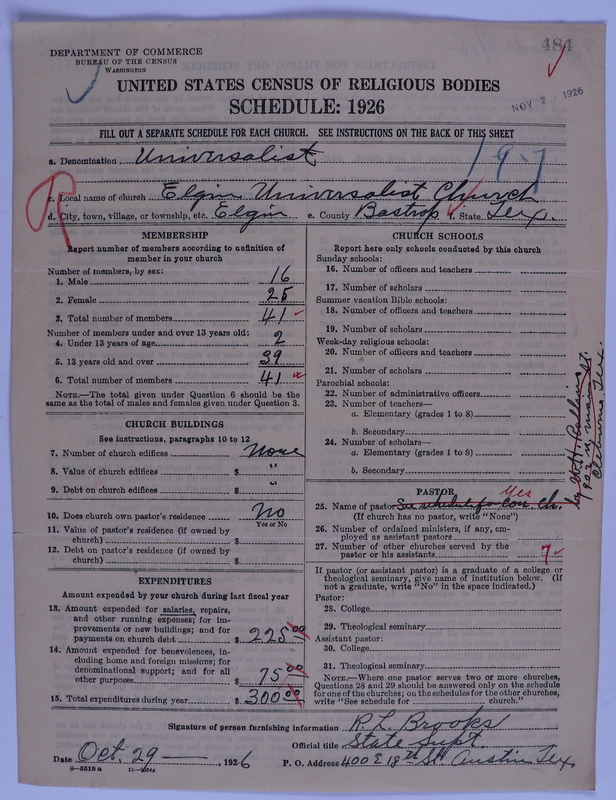 484
DEPARTMENT OF COMMERCE
BUREAU OF THE CENSUS
WASHINGTON
UNITED STATES CENSUS OF RELIGIOUS BODIES
SCHEDULE: 1926
NOV 2 1926
FILL OUT A SEPARATE SCHEDULE FOR EACH CHURCH. SEE INSTRUCTIONS ON THE BACK OF THIS SHEET
a. Denomination Universalist
19-7
c. Local name of church Elgin Universalist Church
d. City, town, village, or township, etc. Elgin e. County Bastrop f. State Tex.
R
MEMBERSHIP
Report number of members according to definition of
member in your church
Number of members, by sex:
1. Male 16
2. Female 25
3. Total number of members 41
Number of members under and over 13 years old:
4. Under 13 years of age 2
5. 13 years old and over 39
6. Total number of members 41
NOTE.—The total given under Question 6 should be
same as the total of males and females given under Question 3.
CHURCH BUILDINGS
See instructions, paragraphs 10 to 12
7. Number of church edifices None
8. Value of church edifices $ "
9. Debt on church edifices $ "
10. Does church own pastor's residence No
Yes or No
11. Value of pastor's residence (if owned by
church) $
12. Debt on pastor's residence (if owned by
church) $
EXPENDITURES
Amount expended by your church during last fiscal year
13. Amount expended for salaries, repairs,
and other running expenses; for im-
provements or new buildings; and for
payments on church debt $ 225 00
14. Amount expended for benevolences, in-
cluding home and foreign missions; for
denominational support; and for all
other purposes $ 75 00
15. Total expenditures during year $ 300 00
CHURCH SCHOOLS
Report here only schools conducted by this church
Sunday schools:
16. Number of officers and teachers
17. Number of scholars
Summer vacation Bible schools:
18. Number of officers and teachers
19. Number of scholars
Week-day religious schools:
20. Number of officers and teachers
21. Number of scholars
Parochial schools:
22. Number of administrative officers
23. Number of teachers—
a. Elementary (grades 1 to 8)
b. Secondary
24. Number of scholars—
a. Elementary (grades 1 to 8)
b. Secondary
PASTOR
Yes
25. Name of pastor See schedule for Con. Ch.
(If church has no pastor, write "None")
26. Number of ordained ministers, if any, em-
ployed as assistant pastors
27. Number of other churches served by the
pastor or his assistants 7
If pastor (or assistant pastor) is a graduate of a college or
theological seminary, give name of institution below. (If
not a graduate, write "No" in the space indicated.)
Pastor:
28. College
29. Theological seminary
Assistant pastor:
30. College
31. Theological seminary
NOTE.—Where one pastor serves two or more churches,
Questions 28 and 29 should be answered only on the schedule
for one of the churches; on the schedules for the other churches,
write "See schedule for church."
902 N. Main St.
Cleburne Tex.
Signature of person furnishing information R. L. Brooks
Official title State Supt.
Date Oct. 29, 1926 P. O. Address 400 E 18th St. Austin Tex
8—5518a